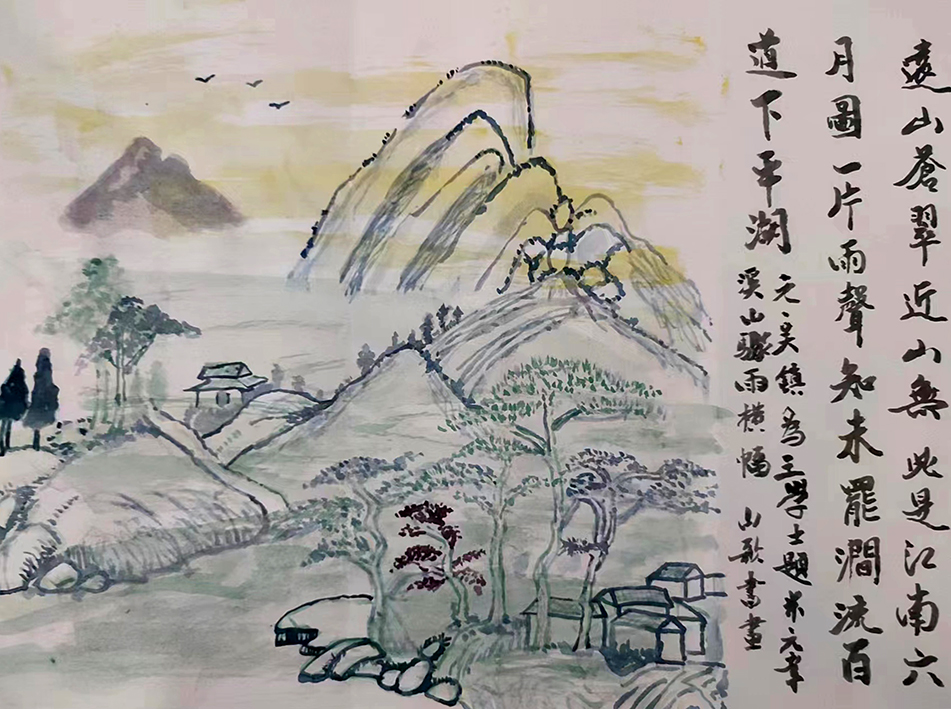 遠山蒼翠近山無此是江南六
月圖一片雨聲知未罷澗流百
道下平湖
元·吴鎮為王學士題米元章
溪山驟雨橫幅 山歌書畫